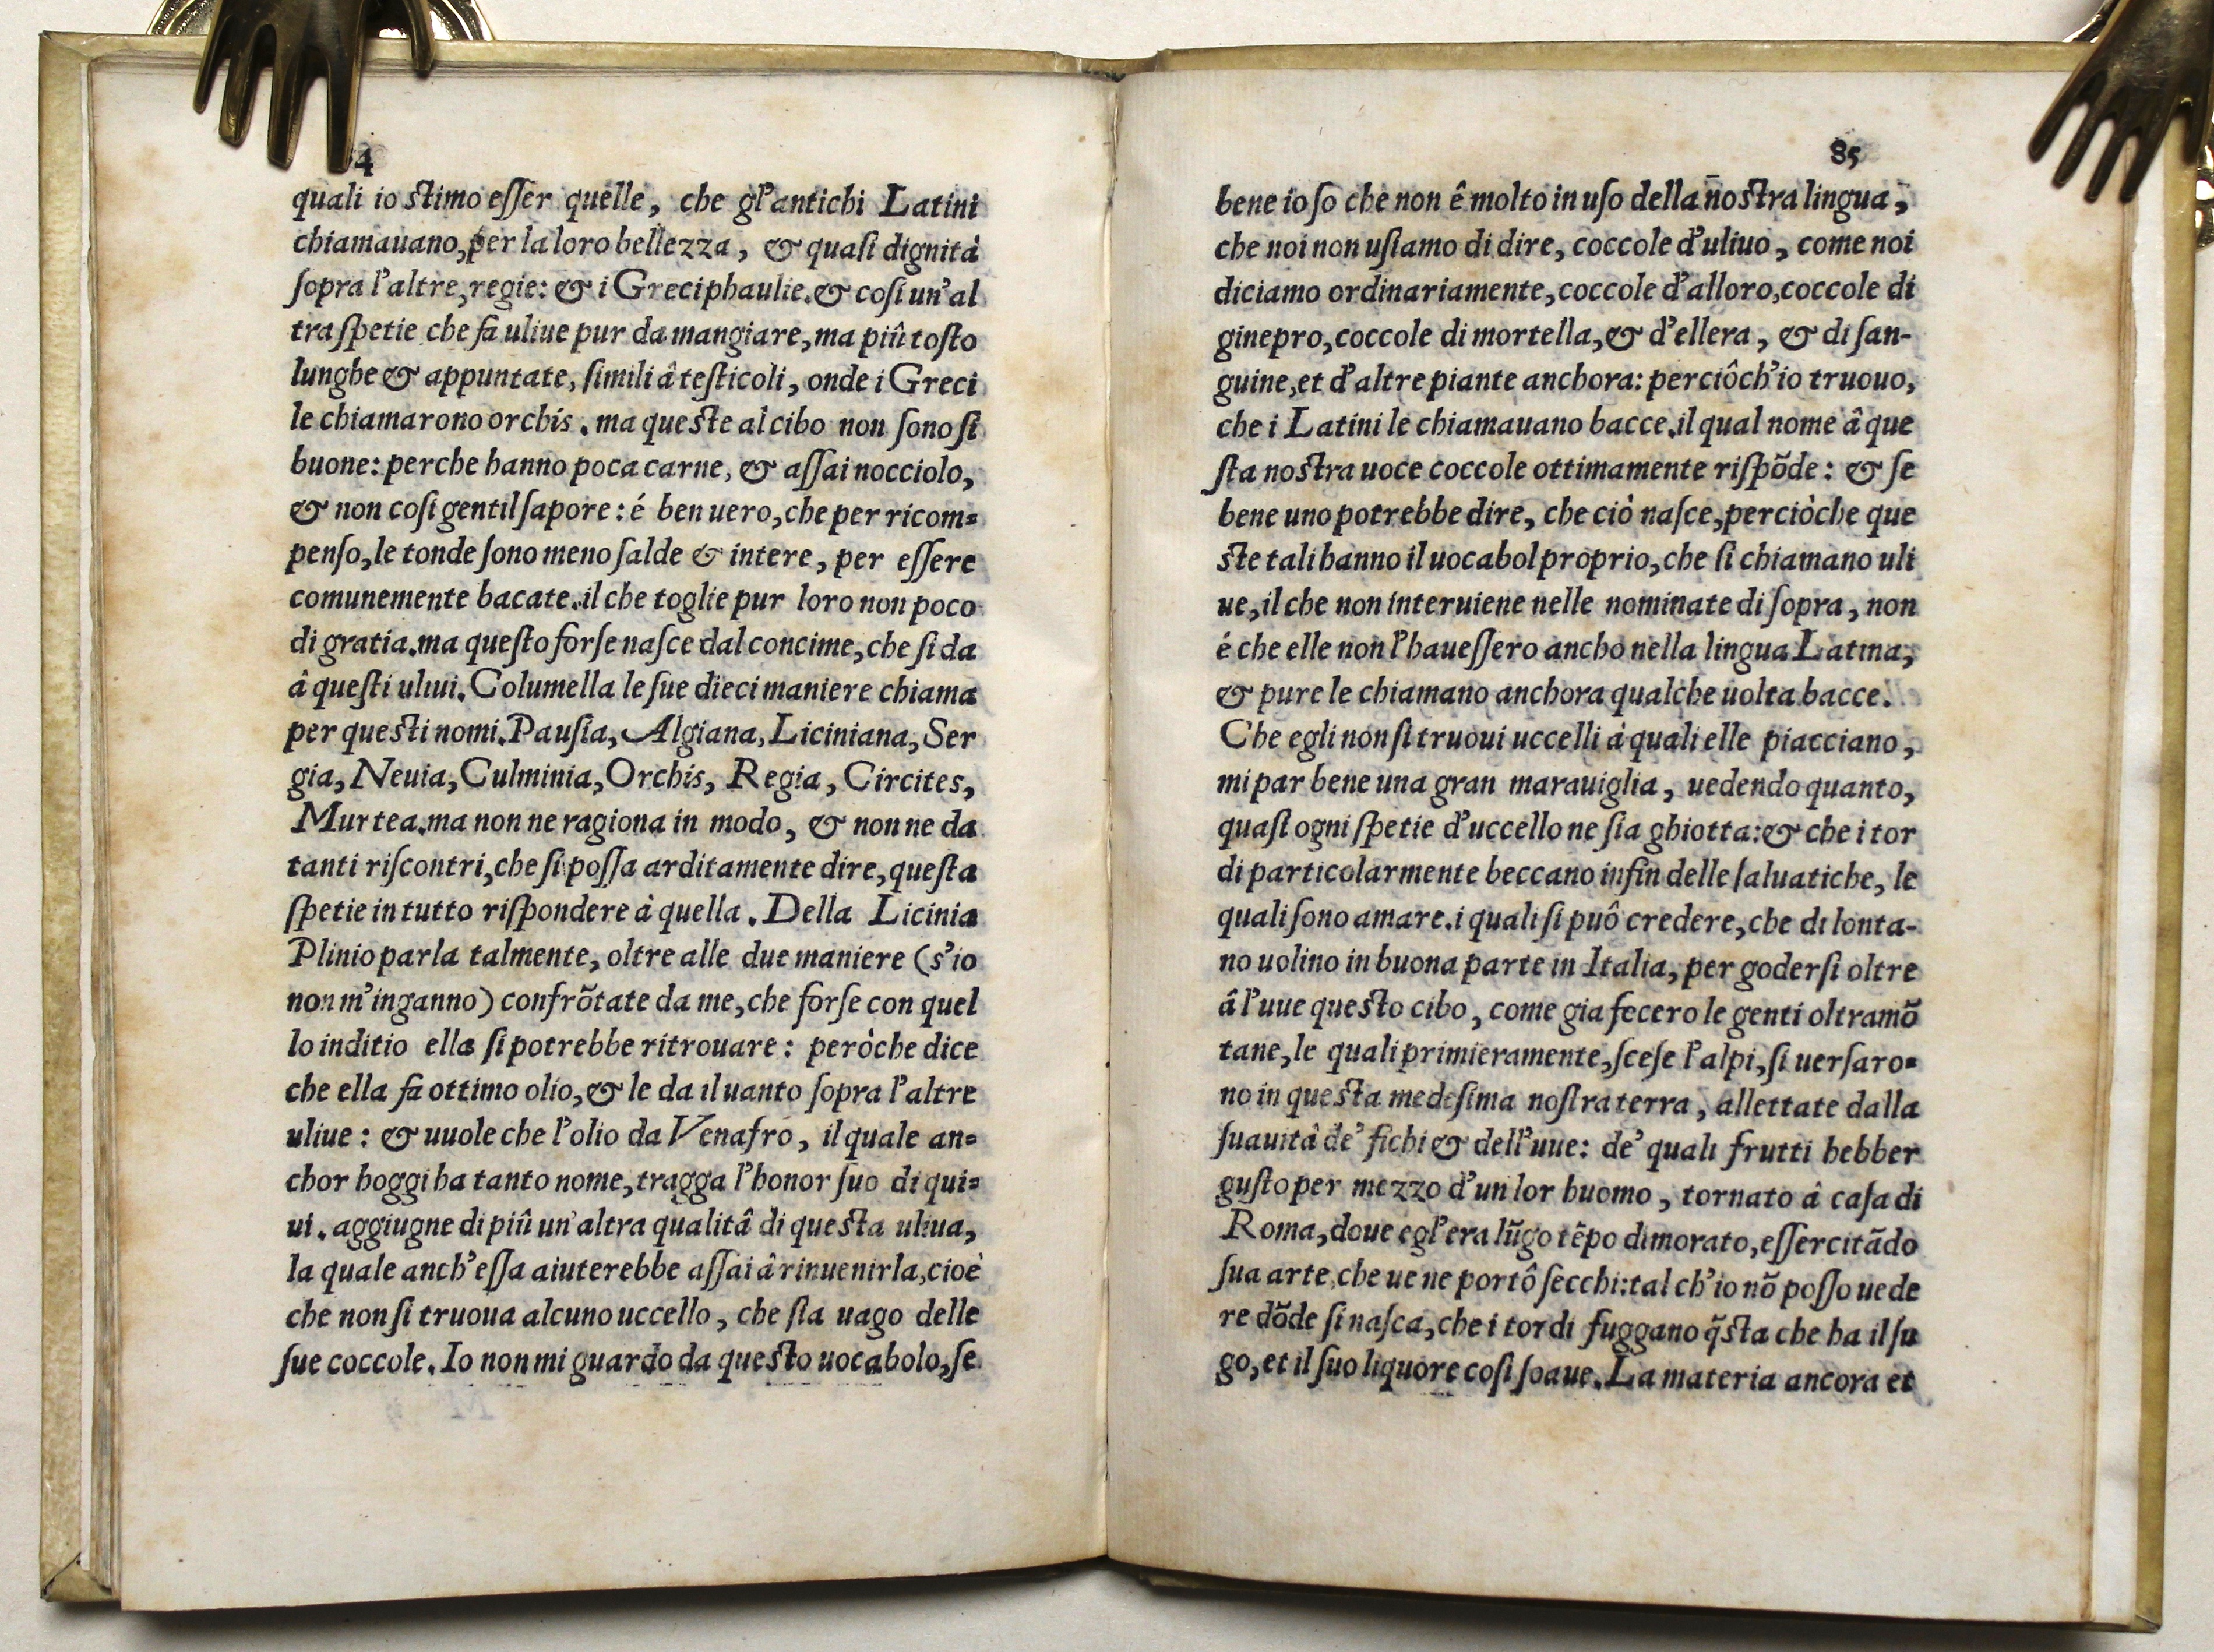 84
quali io ſtimo eſſer quelle, che gl'antichi Latini
chiamauano, per la loro bellezza, & quaſi dignità
ſopra l'altre, regie: & i Greci phaulie. & coſi un'al
tra ſpetie che fa uliue pur da mangiare, ma piû toſto
lunghe & appuntate, ſimili â teſticoli, onde i Greci
le chiamarono orchis. ma queſte al cibo non ſono ſi
buone: perche hanno poca carne, & aſſai nocciolo,
& non coſi gentil ſapore: é ben uero, che per ricom=
penſo, le tonde ſono meno ſalde & intere, per eſſere
comunemente bacate. il che toglie pur loro non poco
di gratia. ma queſto forſe naſce dal concime, che ſi da
â queſti uliui. Columella le ſue dieci maniere chiama
per queſti nomi. Pauſia, Algiana, Liciniana, Ser
gia, Neuia, Culminia, Orchis, Regia, Circites,
Murtea. ma non ne ragiona in modo, & non ne da
tanti riſcontri, che ſi poſſa arditamente dire, queſta
ſpetie in tutto riſpondere à quella. Della Licinia
Plinio parla talmente, oltre alle due maniere (s'io
non m'inganno) confrõtate da me, che forſe con quel
lo inditio ella ſi potrebbe ritrouare: peròche dice
che ella fa ottimo olio, & le da il uanto ſopra l'altre
uliue: & uuole che l'olio da Venafro, il quale an=
chor hoggi ha tanto nome, tragga l'honor ſuo di qui=
ui. aggiugne di piû un'altra qualitâ di queſta uliua,
la quale anch'eſſa aiuterebbe aſſai â rinuenirla, cioè
che non ſi truoua alcuno uccello, che ſia uago delle
ſue coccole. Io non mi guardo da queſto uocabolo, ſe
85
bene io ſo che non ê molto in uſo della noſtra lingua,
che noi non uſiamo di dire, coccole d'uliuo, come noi
diciamo ordinariamente, coccole d'alloro, coccole di
ginepro, coccole di mortella, & d'ellera, & di ſan-
guine, et d'altre piante anchora: perciôch'io truouo,
che i Latini le chiamauano bacce. il qual nome â que
ſta noſtra uoce coccole ottimamente riſpõde: & ſe
bene uno potrebbe dire, che ciò naſce, perciòche que
ſte tali hanno il uocabol proprio, che ſi chiamano uli
ue, il che non interuiene nelle nominate di ſopra, non
é che elle non l'haueſſero ancho nella lingua Latina,
& pure le chiamano anchora qualche uolta bacce.
Che egli non ſi truoui uccelli à quali elle piacciano,
mi par bene una gran marauiglia, uedendo quanto,
quaſi ogni ſpetie d'uccello ne ſia ghiotta: & che i tor
di particolarmente beccano infin delle ſaluatiche, le
quali ſono amare. i quali ſi puô credere, che di lonta-
no uolino in buona parte in Italia, per goderſi oltre
â l'uue queſto cibo, come gia fecero le genti oltramõ
tane, le quali primieramente, ſceſe l'alpi, ſi uerſaro=
no in queſta medeſima noſtra terra, allettate dalla
ſuauitâ de' fichi & dell'uue: de' quali frutti hebber
guſto per mezzo d'un lor huomo, tornato â caſa di
Roma, doue egl'era lũgo tẽpo dimorato, eſſercitãdo
ſua arte, che ue ne portô ſecchi: tal ch'io nõ poſſo uede
re dõde ſi naſca, che i tordi fuggano q̃ſta che ha il ſu
go, et il ſuo liquore coſi ſoaue. La materia ancora et